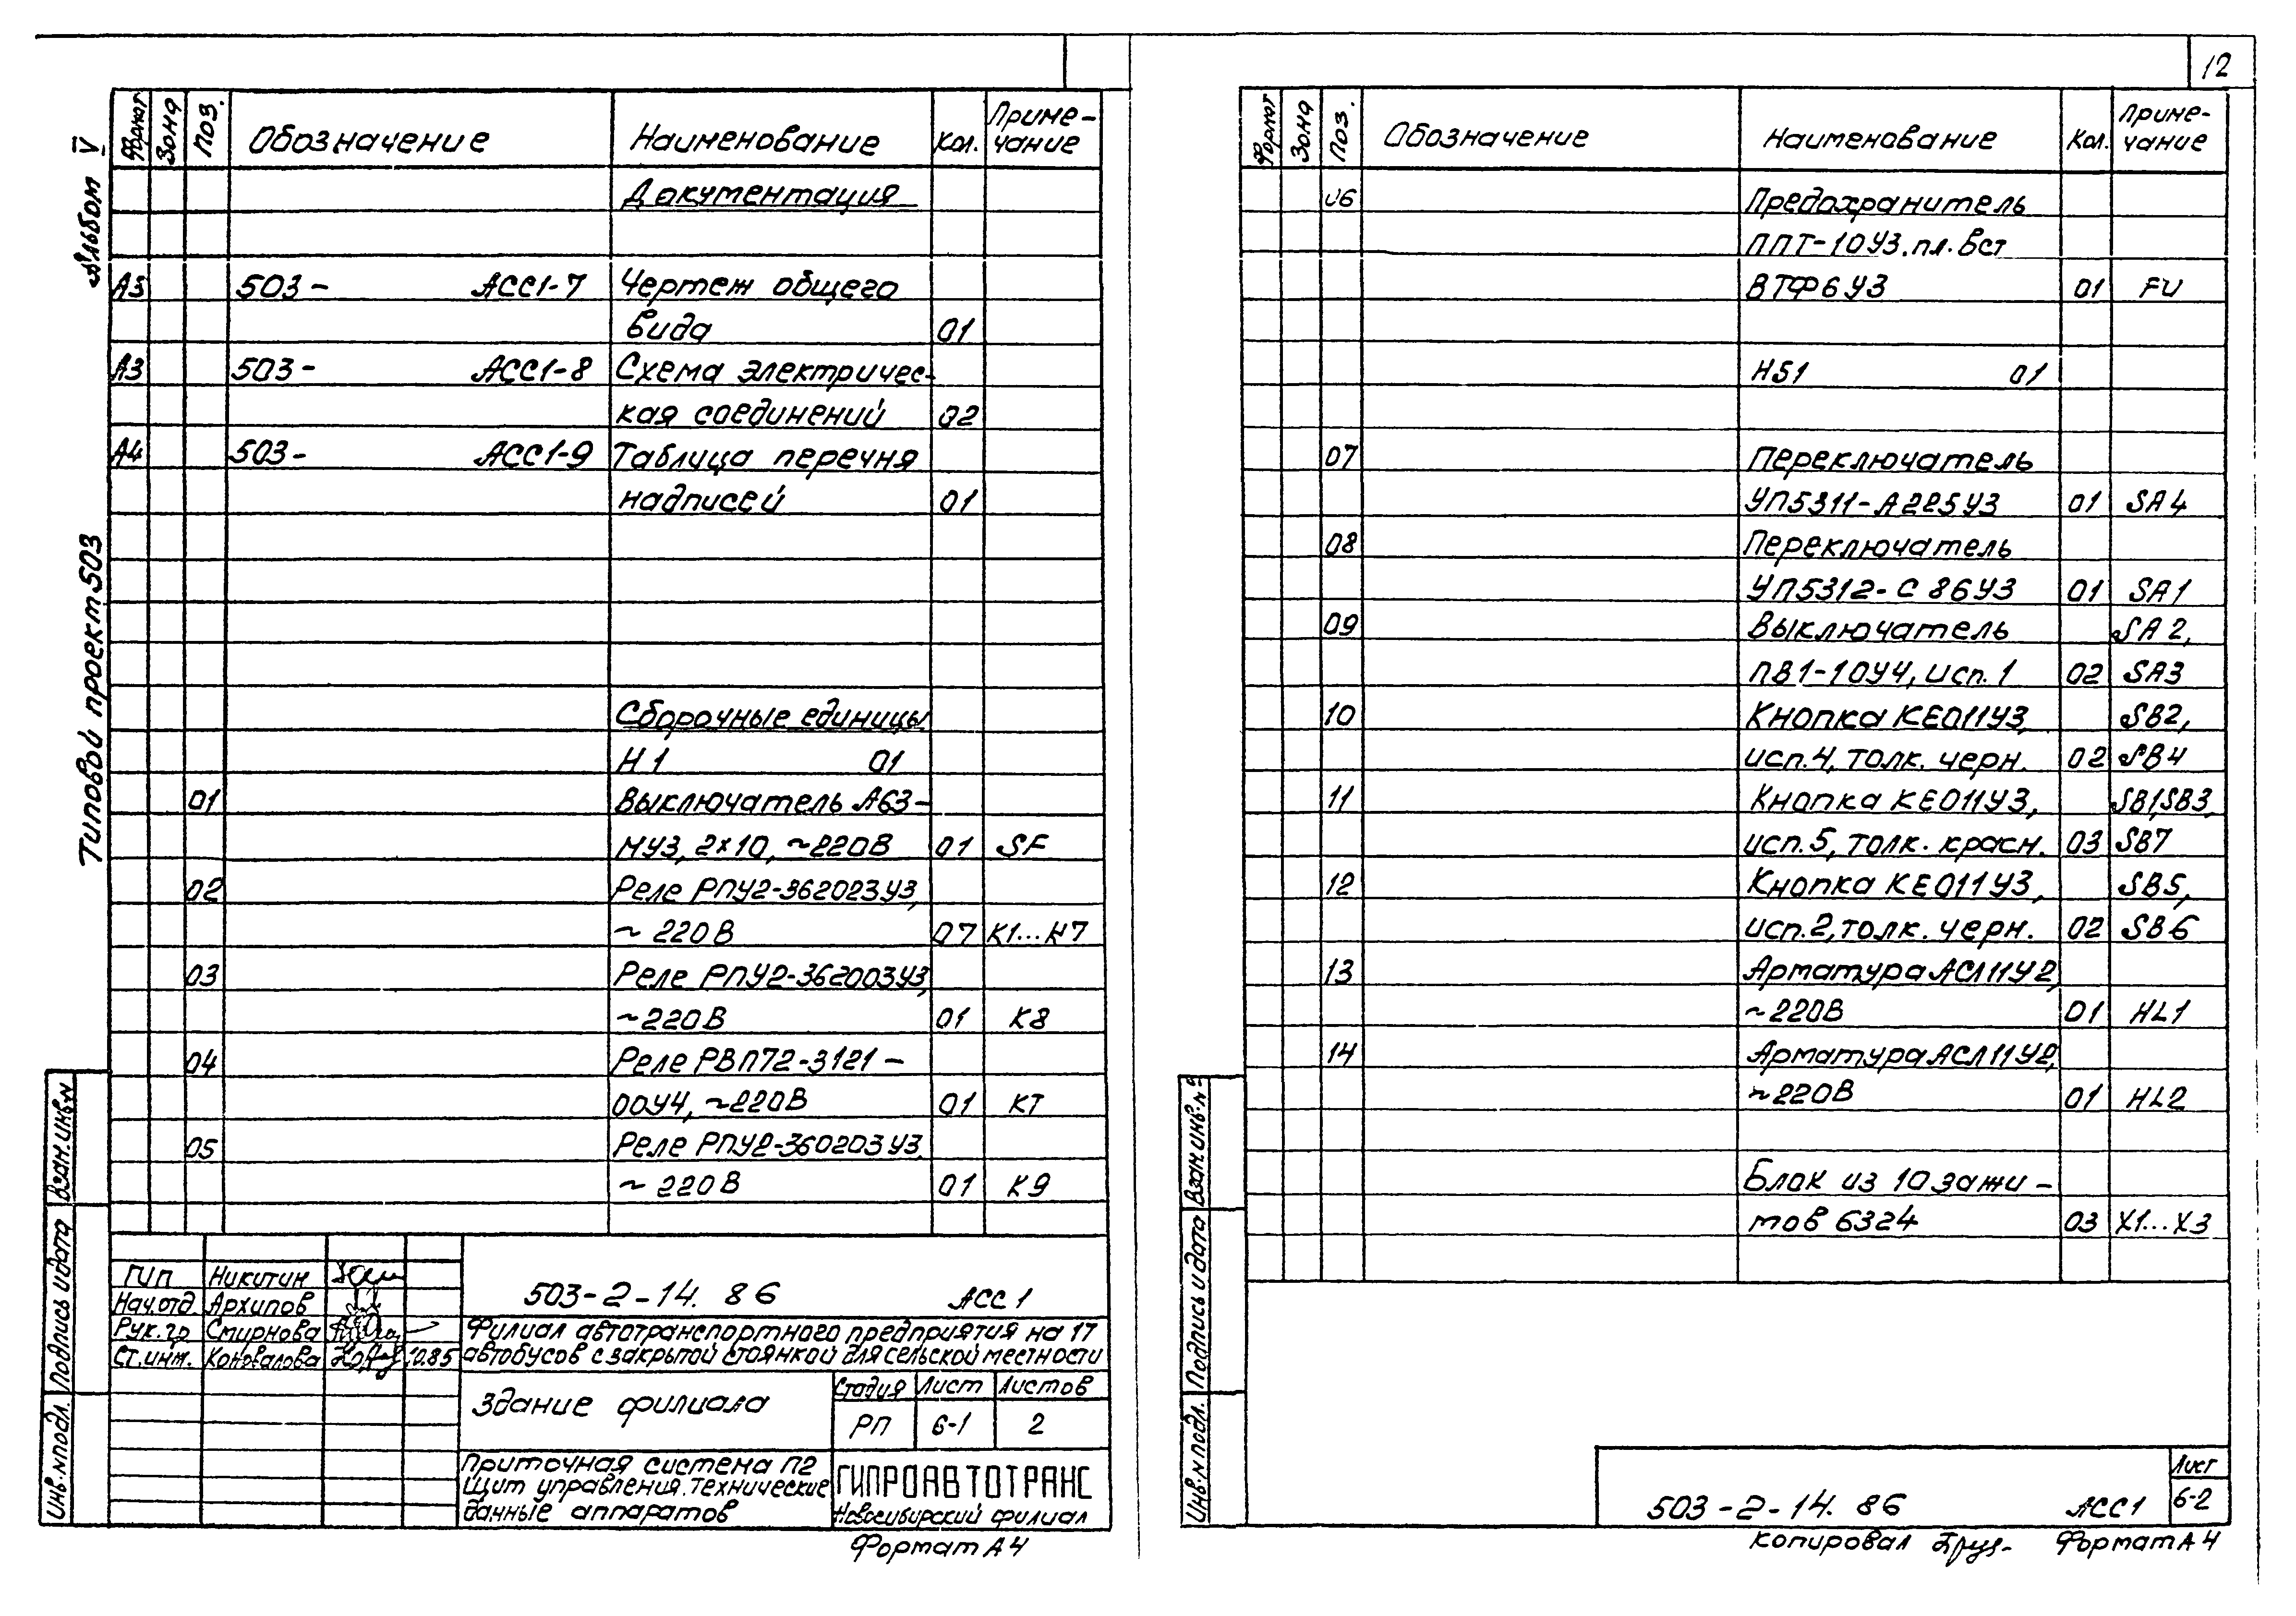 12
Альбом V
Типовой проект 503
Формат Зона Поз. Обозначение Наименование Кол. Приме-
чание
Документация
А3 503- АСС1-7 Чертеж общего
вида 01
А3 503- АСС1-8 Схема электричес-
кая соединений 02
А4 503- АСС1-9 Таблица перечня
надписей 01
Сборочные единицы
Н1 01
01 Выключатель А63-
МУ3, 2х10, ~220В 01 SF
02 Реле РПУ2-362023У3,
~ 220В 07 К1...К7
03 Реле РПУ2-362003У3,
~220В 01 К8
04 Реле РВП72-3121-
00У4, ~220В 01 КТ
05 Реле РПУ2-360203У3,
~ 220В 01 К9
Взам.инв.N
Подпись и дата
Инв.N подл.
ГИП Никитин
Нач.отд Архипов
Рук.гр Смирнова
Ст.инж. Коновалова 10.85
503-2-14.86 АСС1
Филиал автотранспортного предприятия на 17
автобусов с закрытой стоянкой для сельской местности
Здание филиала
Стадия Лист Листов
РП 6-1 2
Приточная система П2
Щит управления. Технические
данные аппаратов
ГИПРОАВТОТРАНС
Новосибирский филиал
Формат А4
Формат Зона Поз. Обозначение Наименование Кол. Приме-
чание
06 Предохранитель
ППТ-10У3, пл. вст
ВТФ6У3 01 FU
Н51 01
07 Переключатель
УП5311-А225У3 01 SA4
08 Переключатель
УП5312-С86У3 01 SA1
09 Выключатель SA2,
ПВ1-10У4, исп.1 02 SA3
10 Кнопка КЕ011У3, SB2,
исп.4, толк. черн. 02 SB4
11 Кнопка КЕ011У3, SB1,SB3,
исп.5, толк. красн. 03 SB7
12 Кнопка КЕ011У3, SB5,
исп.2, толк. черн. 02 SB6
13 Арматура АСЛ11У2,
~220В 01 HL1
14 Арматура АСЛ11У2,
~220В 01 HL2
Блок из 10 зажи-
мов 6324 03 Х1...Х3
Взам.инв.N
Подпись и дата
Инв.N подл.
503-2-14.86 АСС1
Лист
6-2
Копировал Формат А4